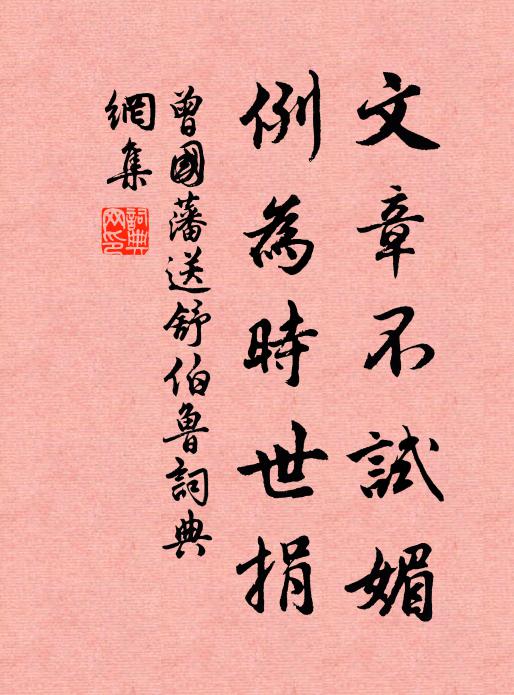 文章不試媚
例為時世捐
曾國藩送舒伯魯詞典
網集
詞典網印